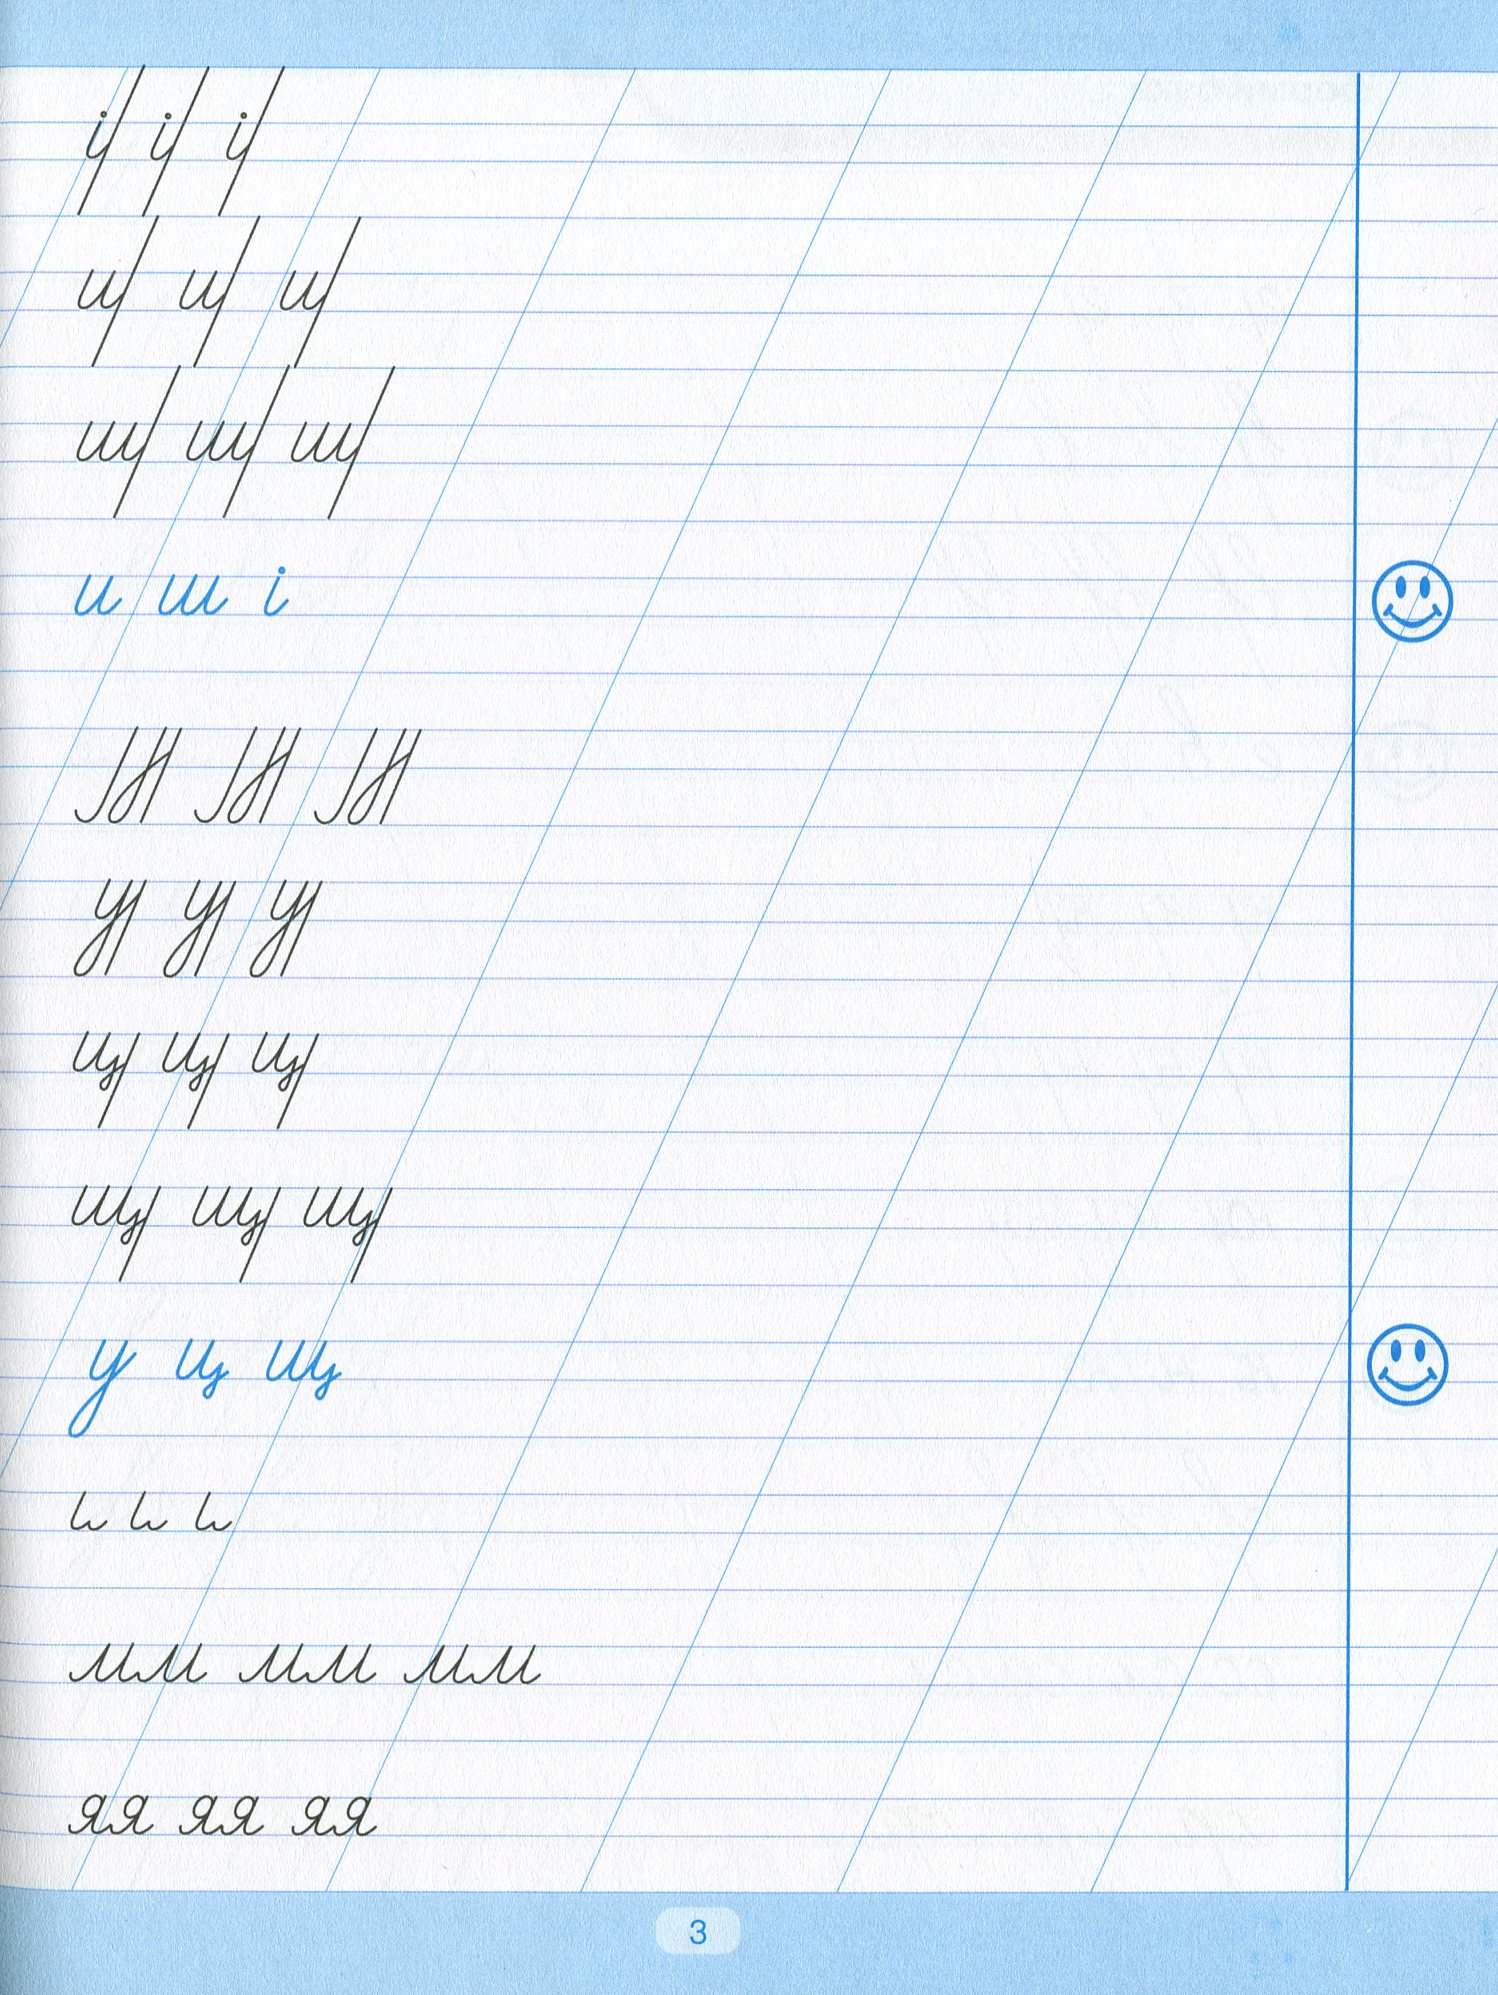 і і і
и и и
ш ш ш
и ш і
у у у
ц ц ц
щ щ щ
у ц щ
мм мм мм
яя яя яя
3